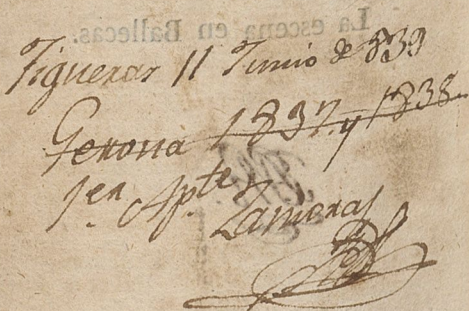 La escena en Ballecas.
Figueras 11 Junio de 839
Gerona 1837 y 1838
1er Apte